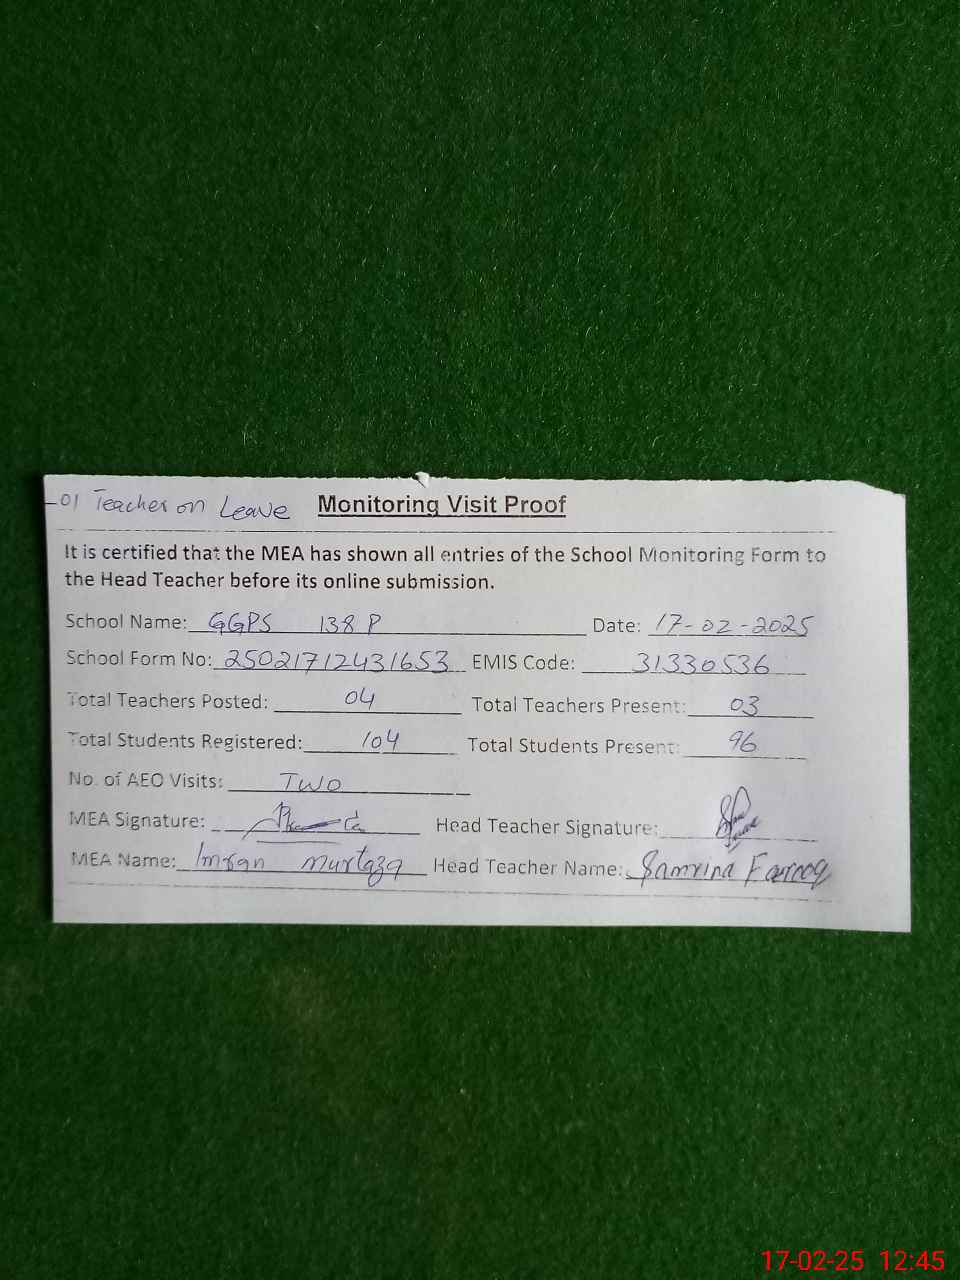 -01 Teacher on Leave Monitoring Visit Proof
It is certified that the MEA has shown all entries of the School Monitoring Form to
the Head Teacher before its online submission.
School Name: GGPS 138 P Date: 17-02-2025
School Form No: 25021712431653 EMIS Code: 31330536
Total Teachers Posted: 04 Total Teachers Present: 03
Total Students Registered: 104 Total Students Present: 96
No. of AEO Visits: Two
MEA Signature: Head Teacher Signature:
MEA Name: Imran Murtaza Head Teacher Name: Samrina Farooq
17-02-25 12:45